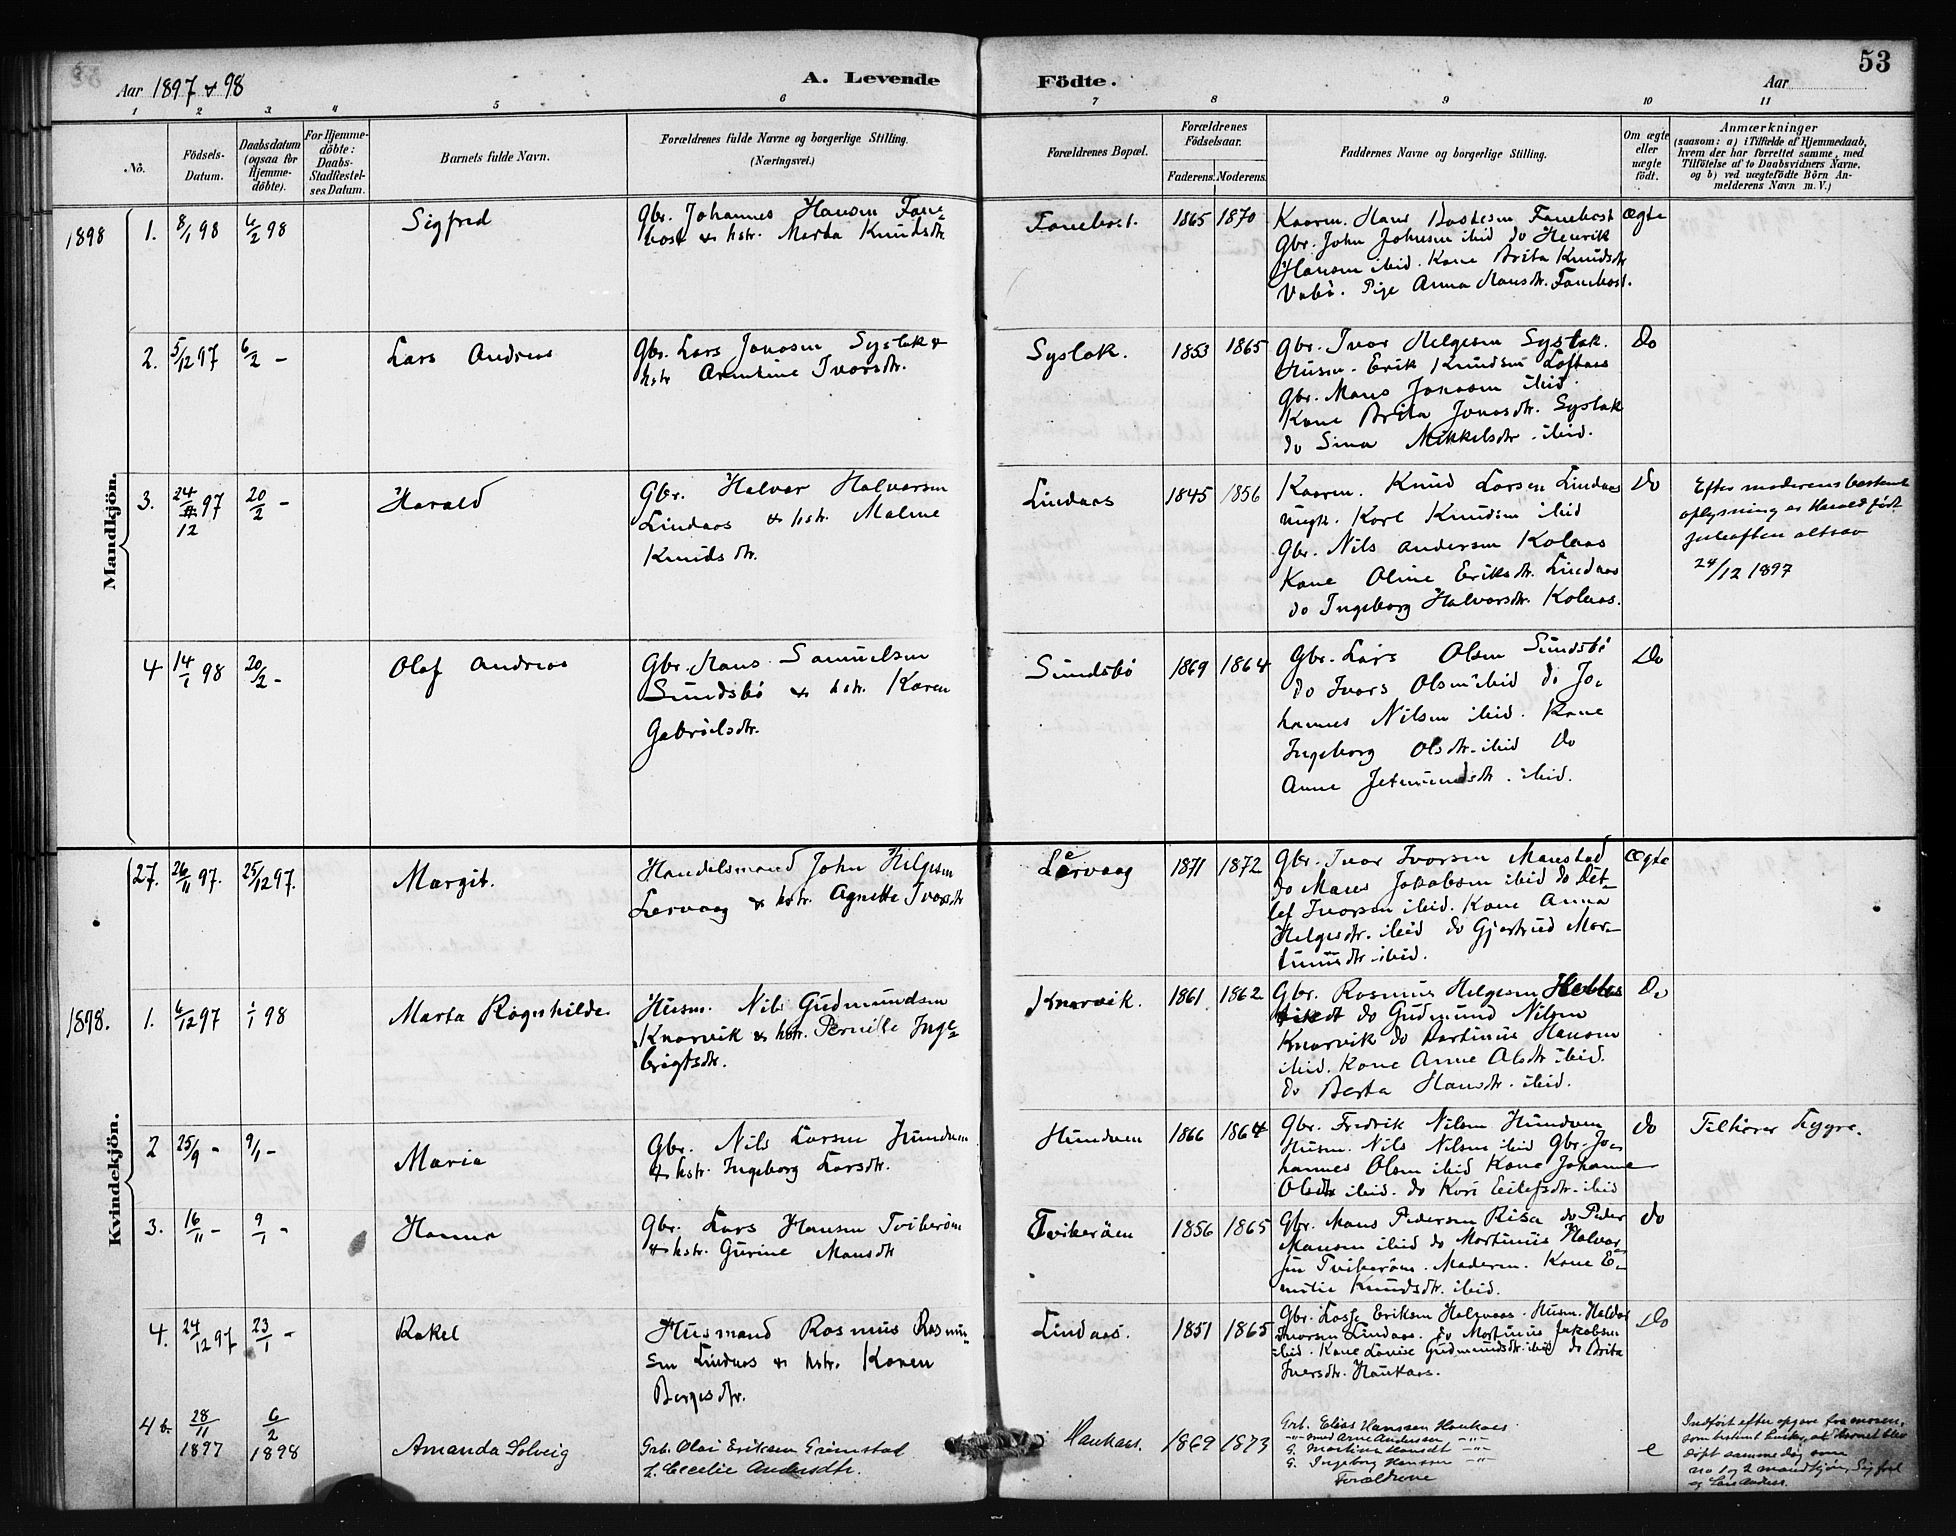 53
Aar 1897 & 98
A. Levende
Födte.
Aar
1 2 3 4 5 6 7 8 9 10 11
No.
Födsels-
Datum.
Daabsdatum
(ogsaa for
Hjemme-
döbte).
For Hjemme-
döbte:
Daabs-
Stadfæstel-
ses Datum.
Barnets fulde Navn.
Forældrenes fulde Navne og borgerlige Stilling.
(Næringsvei.)
Forældrenes Bopæl.
Forældrenes
Födselsaar.
Faderens. Moderens.
Faddernes Navne og borgerlige Stilling.
Om ægte
eller
uægte
födt.
Anmærkninger
(saasom: a) i Tilfælde af Hjemmedaab,
hvem der har forrettet samme, med
Tilföielse af to Daabsvidners Navne,
og b) ved uægtefödte Börn An-
melderens Navn m. V.)
Mandkjön.
1898
1. 8/1 98 6/2 98
Sigfred
Gbr. Johannes Hansen Fane-
bost & hstr. Marta Knudsdtr.
Fanebost.
1865 1870
Kaarm. Hans Fanebost
Gbr. John Johnesen ibid do Henrik
Hansen ibid. Kone Brita Knudsdtr
Vabö. Pige Anna Hansdtr. Fanebost.
ægte
2. 5/12 97 6/2 -
Lars Andreas
Gbr. Lars Jonasen Syslak &
hstr Ivarsdtr.
Syslak.
1853 1865
Gbr. Ivar Helgesen Syslak.
Husm. Erik Knudsen Loftaas
Gbr. Mons Jonasen ibid.
Kone Brita Jonasdtr. Syslak
do Sina Mikkelsdtr. ibid.
Do
3. 24/12 97 20/2 -
Harald
Gbr. Halvor Halvorsen
Lindaas & hstr. Malene
Knudsdtr.
Lindaas
1845 1856
Kaarm. Knud Larsen Lindaas
ungk. Karl Knudsen ibid
Gbr. Nils Andersen Kolaas
Kone Oline Eriksdtr. Lindaas
do Ingeborg Halvorsdtr. Kolaas.
Do
Efter moderens bestemte
oplysning er Harald födt
juleaften altsaa
24/12 1897
4 14/1 98 20/2 -
Olaf Andreas
Gbr. Hans Samuelsen
Sundsbö & hstr. Karen
Gabrielsdtr.
Sundsbö
1869 1864
Gbr. Lars Olsen Sundsbö
do Ivars Olsen ibid do Jo-
hannes Nilsen ibid. Kone
Ingeborg Olsdtr. ibid Do
Anne Jetmundsdtr. ibid.
Do
Kvindekjön.
27. 26/11 97. 25/12 97.
Margit.
Handelsmand John Helgesen
Lervaag & hstr. Agnethe Ivarsdtr
Lervaag
1871 1872
Gbr. Ivar Ivarsen Manstad
do Mans Jakobsen ibid do Det-
lef Ivarsen ibid. Kone Anna
Helgesdtr. ibid do Gjertrud Mar-
tinusdtr. ibid.
Ægte
1898.
1. 6/12 97 1/1 98
Marta Ragnhilde.
Husm. Nils Gudmundsen
Knarvik & hstr. Pernille Inge-
brigtsdtr.
Knarvik.
1861 1862
Gbr. Rasmus Helgesen
do Gudmund Nilsen
Knarvik do Martinus Hansen
ibid. Kone Anne Olsdtr ibid.
do Berta Hansdtr. ibid.
Do
2 25/9 - 9/1 -
Maria
Gbr. Nils Larsen Hundven
& hstr. Ingeborg Larsdtr.
Hundven
1866 1864
Gbr. Fredrik Nilsen Hundven
Husm. Nils Nilsen ibid Gbr. Jo-
hannes Olsen ibid Kone Johanne
Olsdtr ibid. do Kari Eilefsdtr. ibid
do
Tilhører Lygre.
3. 16/11 - 9/1 -
Hanna
Gbr. Lars Hansen Tviberöen
& hstr. Gurine Monsdtr
Tviberöen
1856 1865
Gbr. Mons Pedersen Risa do Peder
Mansen ibid do Martinus Halvor-
sen Tviberöen. Moderen. Kone E-
milie Knudsdtr. ibid.
do
4. 24/12 97 23/1 -
Rakel
Husmand Rasmus Rasmus-
sen Lindaas & hstr. Karen
Bergesdtr.
Lindaas.
1851 1865
Gbr. Lasse Eriksen . Husm. Haldor
Ivarsen Lindaas. do Martinus Jakobsen
ibid. Kone Lovise Gudmundsdtr. ibid do Brita
Iversdtr. Haukaas.
Do
4 b. 28/11 1897 6/2 1898
Amanda Solveig
Grb. Olai Eriksen Grimstad
h. Cecilie Andersdtr.
Haukaas.
1869 1873
Grb. Elias Hanssen Haukaas
Arne Andersen -"-
G. Martina -"-
G. Ingeborg Hansen -"-
Foreldrene
e
Indfört efter opgave fra moren,
som bestemt husker, at barnet blev
döpt samme dag som
no 1 og 2 mandkjön, Sigfred
og Lars Andreas.